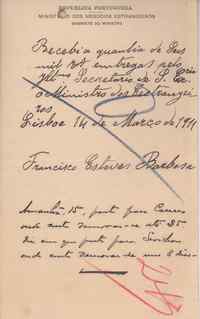 REPUBLICA PORTUGUEZA
MINISTERIO DOS NEGOCIOS EXTRANGEIROS
GABINETE DO MINISTRO
Recebi a quantia de Seis
mil rs entregas pelo
Illmo Secretario de S. Exª
o Ministro dos Estrangei
ros
Lisboa 14 de Março de 1911
Francisco Esteves Barbosa
Amanhã, 15, parte para
onde até 25
dia em que parte para
onde 8 dias